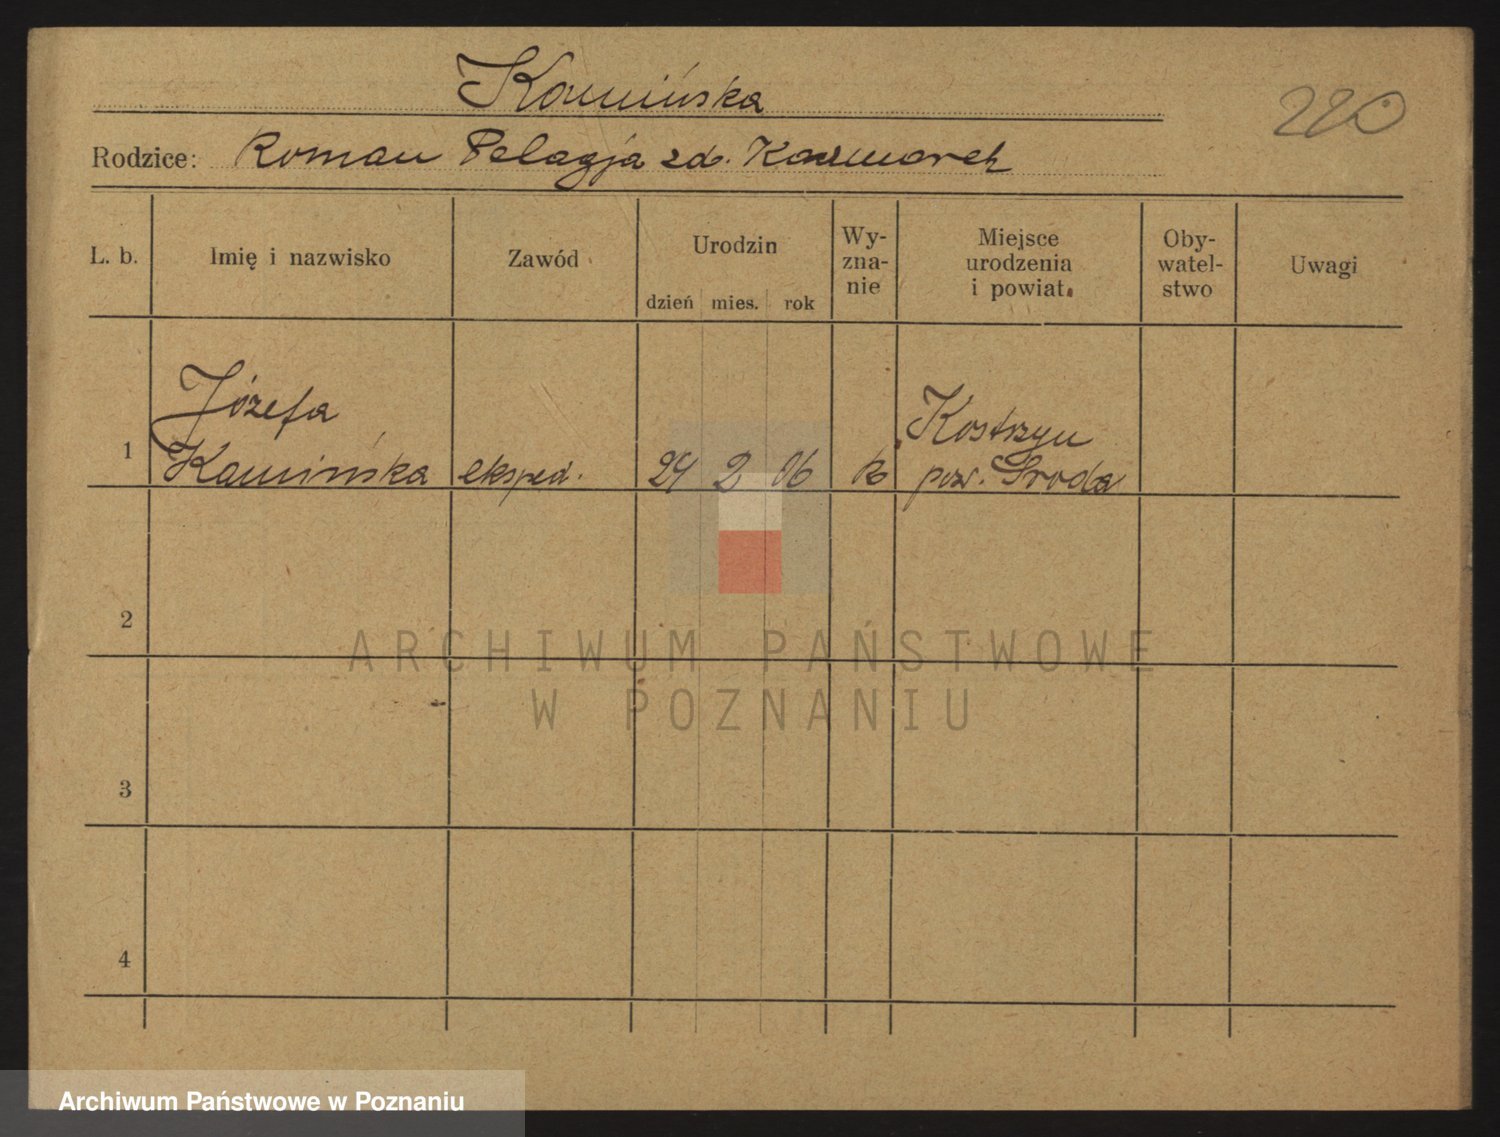 Kamińska
220
Rodzice: Roman Pelagja zd. Kaczmarek
L. b.
Imię i nazwisko
Zawód
Urodzin
dzień mies. rok
Wy-
zna-
nie
Miejsce
urodzenia
i powiat
Oby-
watel-
stwo
Uwagi
1
Józefa
Kamińska
eksped.
24 2 06
k
Kostrzyn
pow. Środa
2
3
4
ARCHIWUM PAŃSTWOWE
W POZNANIU
Archiwum Państwowe w Poznaniu